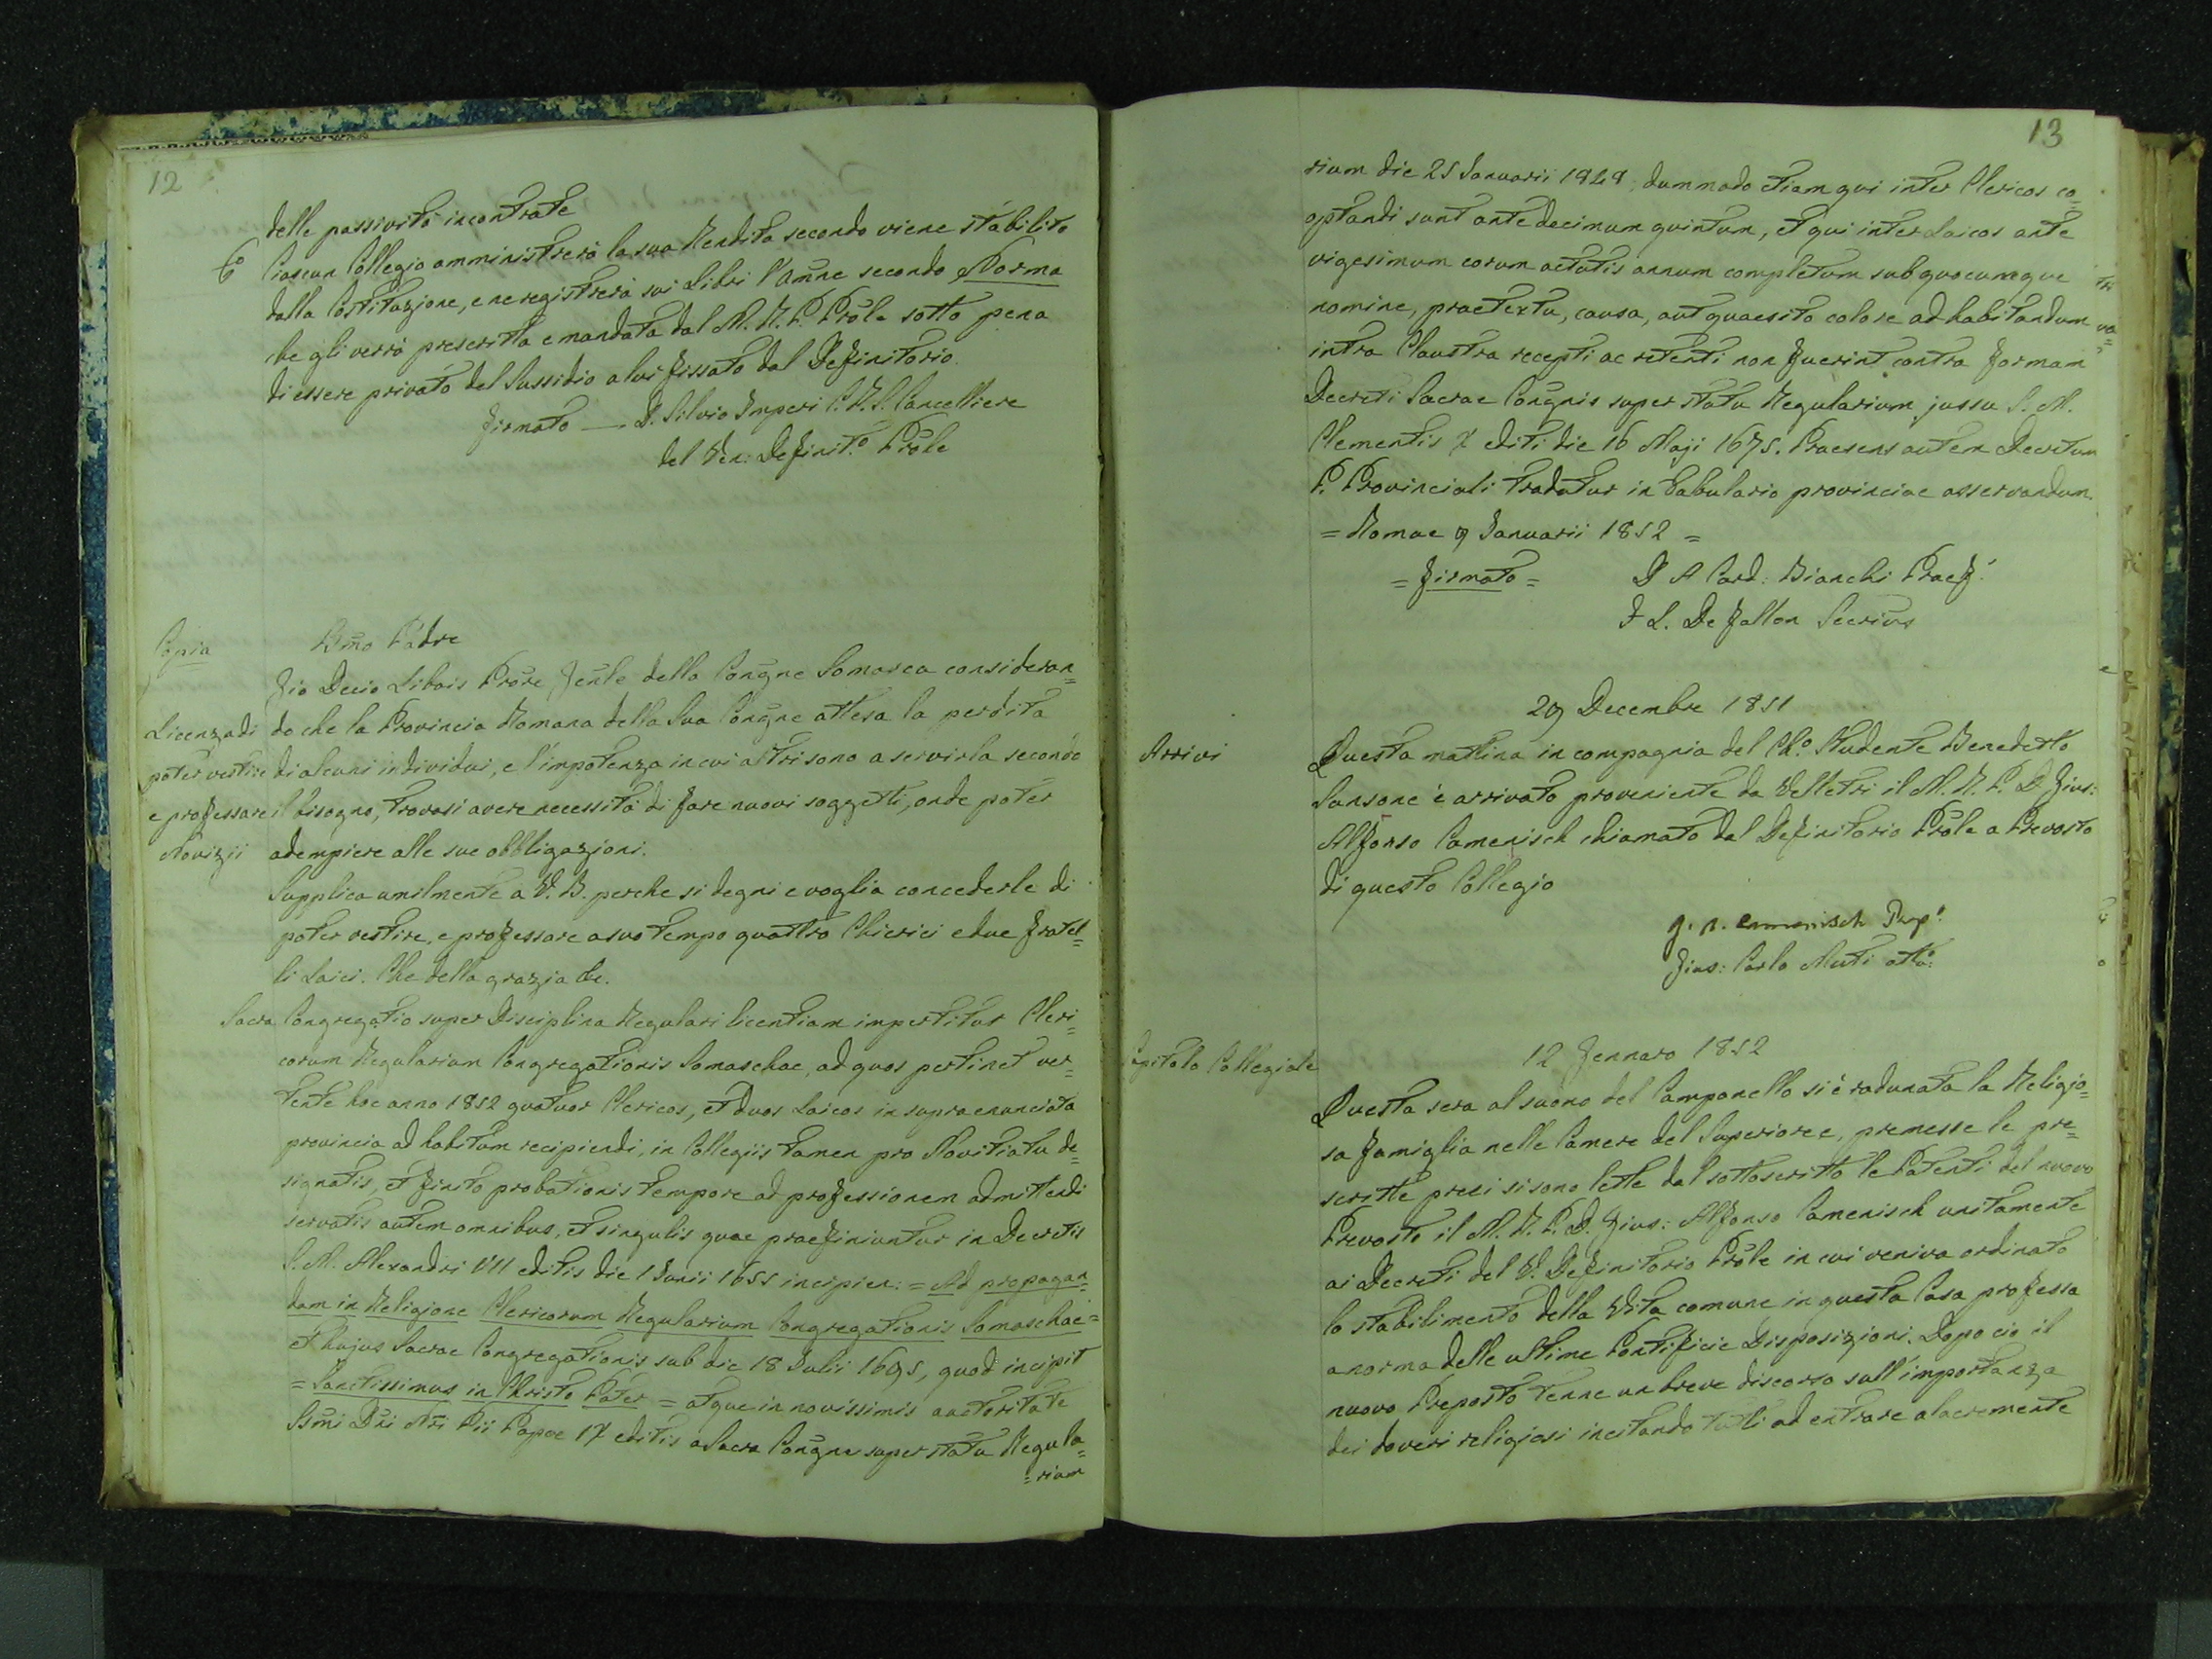 12
delle passività incontrate
6 Ciascun Collegio amministrerà la sua Rendita secondo viene stabilito
dalla Costituzione, e ne registrerà sui Libri l'amñe secondo Norma
che gli verrà prescritta e mandata dal M. R. P. Prõle sotto pena
di essere privato del Sussidio a lui fissato dal Definitorio.
firmato — D. Silvio Imperi C. R. S. Cancelliere
del Ven: Definit.o Prõle
Copia
Bm̃o Padre
Gio Decio Libois Prõre Geñle della Congñe Somasca consideran=
Licenza di do che la Provincia Romana della Sua Congñe attesa la perdita
poter vestire di alcuni individui, e l'impotenza in cui altri sono a servirla secondo
e professare il bisogno, trovasi avere necessità di fare nuovi soggetti, onde poter
Novizii adempiere alle sue obbligazioni.
Supplica umilmente a V. B. perche si degni e voglia concederle di
poter vestire, e professare a suo tempo quattro Chierici e due fratel=
li Laici. Che della grazia &c.
Sacra Congregatio super Disciplina Regulari licentiam impertitur Cleri=
corum Regularium Congregationis Somaschae, ad quos pertinet ver=
tente hoc anno 1852 quatuor Clericos, et duos Laicos in supraenunciata
provincia ad habitum recipiendi, in Collegiis tamen pro Novitiatu de=
signatis, et finito probationis tempore ad professionem admittendi
servatis autem omnibus, et singulis quae praefiniuntur in Decretis
S. M. Alexandri VII editis die 1 Junii 1655 incipien: = Ad propagan=
dam in Religione Clericorum Regularium Congregationis Somaschae =
et hujus Sacrae Congregationis sub die 18 Julii 1695, quod incipit
= Sanctissimus in Christo Pater = atque in novissimis auctoritate
Ssm̃i Dñi Nr̃i Pii Papae IX editis a Sacra Congñe super statu Regula=
=rium
13
rium die 25 Januarii 1848; dummodo etiam qui inter Clericos co=
optandi sunt ante decimum quintum, et qui inter Laicos ante
vigesimum eorum aetatis annum completum sub quocumque
nomine, praetextu, causa, aut quaesito colore ad habitandum
intra Claustra recepti ac retenti non fuerint contra formam
Decreti Sacrae Congñis super statu Regularium jussu S. M.
Clementis X editi die 16 Maji 1675. Praesens autem Decretum
P. Provinciali tradatur in Tabulario provinciae asservandum.
= Romae 9 Januarii 1852 =
= firmato = D A Card: Bianchi Praef.
F L. De Jallon Secrius
29 Decembre 1851
Arrivi Questa mattina in compagnia del Ch.o Studente Benedetto
Sansone è arrivato proveniente da Velletri il M. R. P. D. Gius:
Alfonso Camenisch chiamato dal Definitorio Prõle a Prevosto
di questo Collegio
G. A. Camenisch Prep.
Gius: Carlo Muti att.o:
12 Gennaro 1852
Capitolo Collegiale
Questa sera al suono del Campanello si è radunata la Religio=
sa famiglia nelle Camere del Superiore e, premesse le pre=
scritte preci si sono lette dal sottoscritto le Patenti del nuovo
Prevosto il M. R. P. D. Gius: Alfonso Camenisch unitamente
ai Decreti del V. Definitorio Prõle in cui veniva ordinato
lo stabilimento della Vita comune in questa Casa professa
a norma delle ultime Pontificie Disposizioni. Dopo cio il
nuovo Preposto tenne un breve discorso sull'importanza
dei doveri religiosi incitando tutti ad entrare alacremente